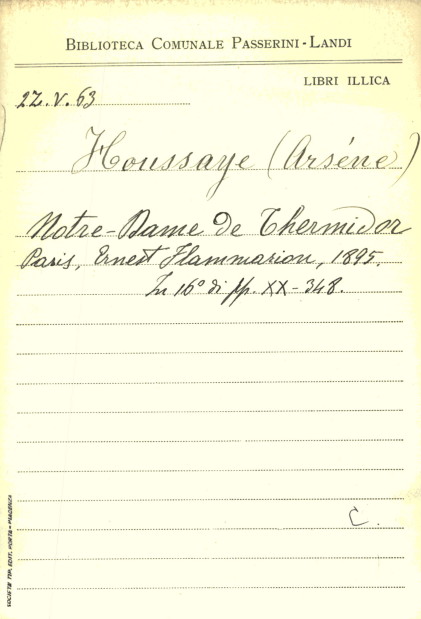 BIBLIOTECA COMUNALE PASSERINI-LANDI
LIBRI ILLICA
2Z.V.63
Houssaye (Arséne)
Notre-Dame de Thermidor
Paris, Ernest Flammarion, 1895.
In 16° di pp. XX-348.
C.
SOCIETÀ TIP. EDIT. PORTA - PIACENZA